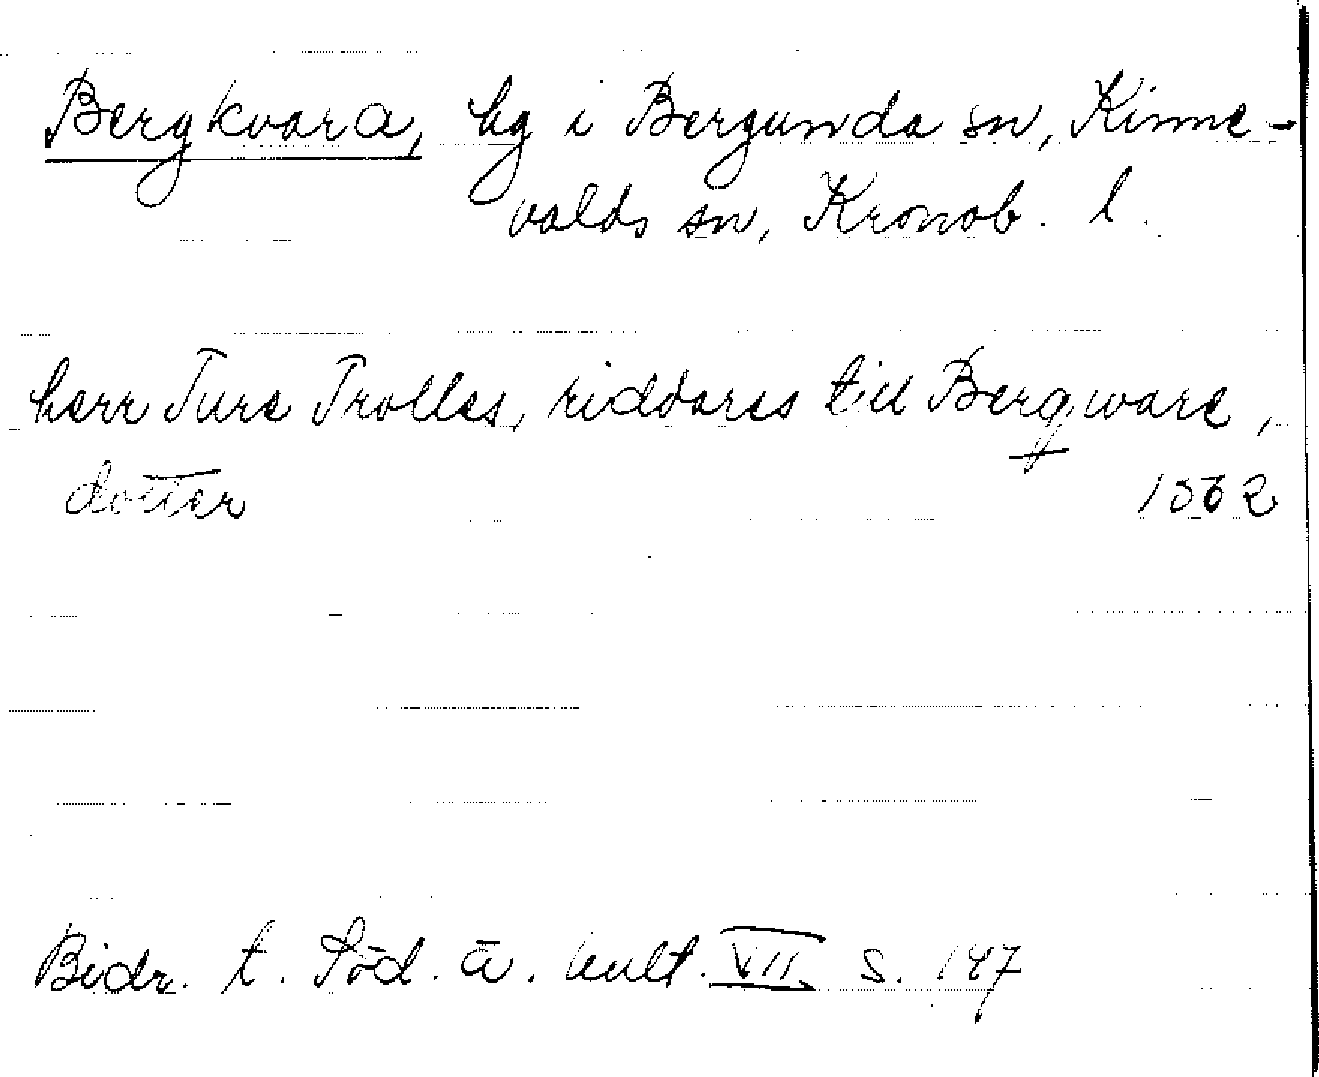 Bergkvara, hg i Bergunda sn, Kinne-
valds sn, Kronob. l.
herr Ture Trolles, riddares till Bergware,
dotter 1562
Bidr. t. Söd. ä. kult. VII s. 147